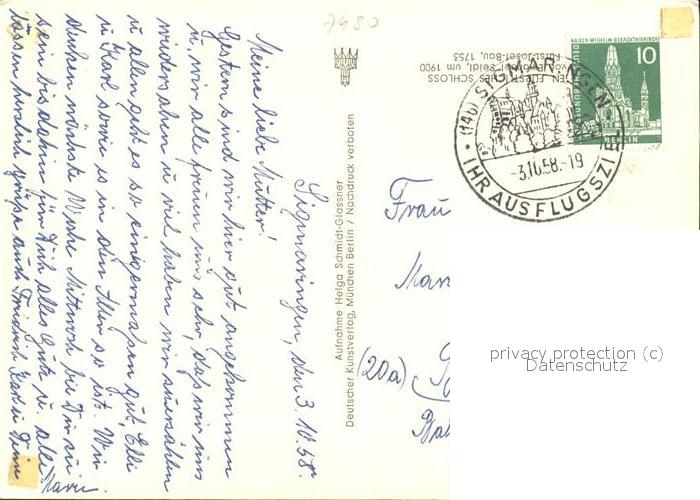 Sigmaringen, den 3.10.58.
Meine liebe Mutter!
Gestern sind wir hier gut angekommen
u. wir alle freuen uns sehr, daß wir uns
wiedersehen u. viel haben wir zu erzählen
u. allen geht es so einigermaßen gut, Elli
u. Karl sowie es in dem Alter so ist. Wir
denken nächste Woche Mittwoch bei Dir zu
sein bis dahin für Dich alles Gute u. alle
lassen herzlich grüßen auch Friedrich Karl u. Deine
7480
ZEIL, FÜRSTLICHES SCHLOSS
von Emanuel Seidl, um 1900
Fürst-Josef-Bau, 1753
Aufnahme Helga Schmidt-Glassner
Deutscher Kunstverlag, München Berlin / Nachdruck verboten
(14b) SIGMARINGEN
-3.10.58.-19
IHR AUSFLUGSZIEL
10
DEUTSCHE BUNDESPOST
BERLIN
Frau
(20a)
privacy protection (c)
Datenschutz